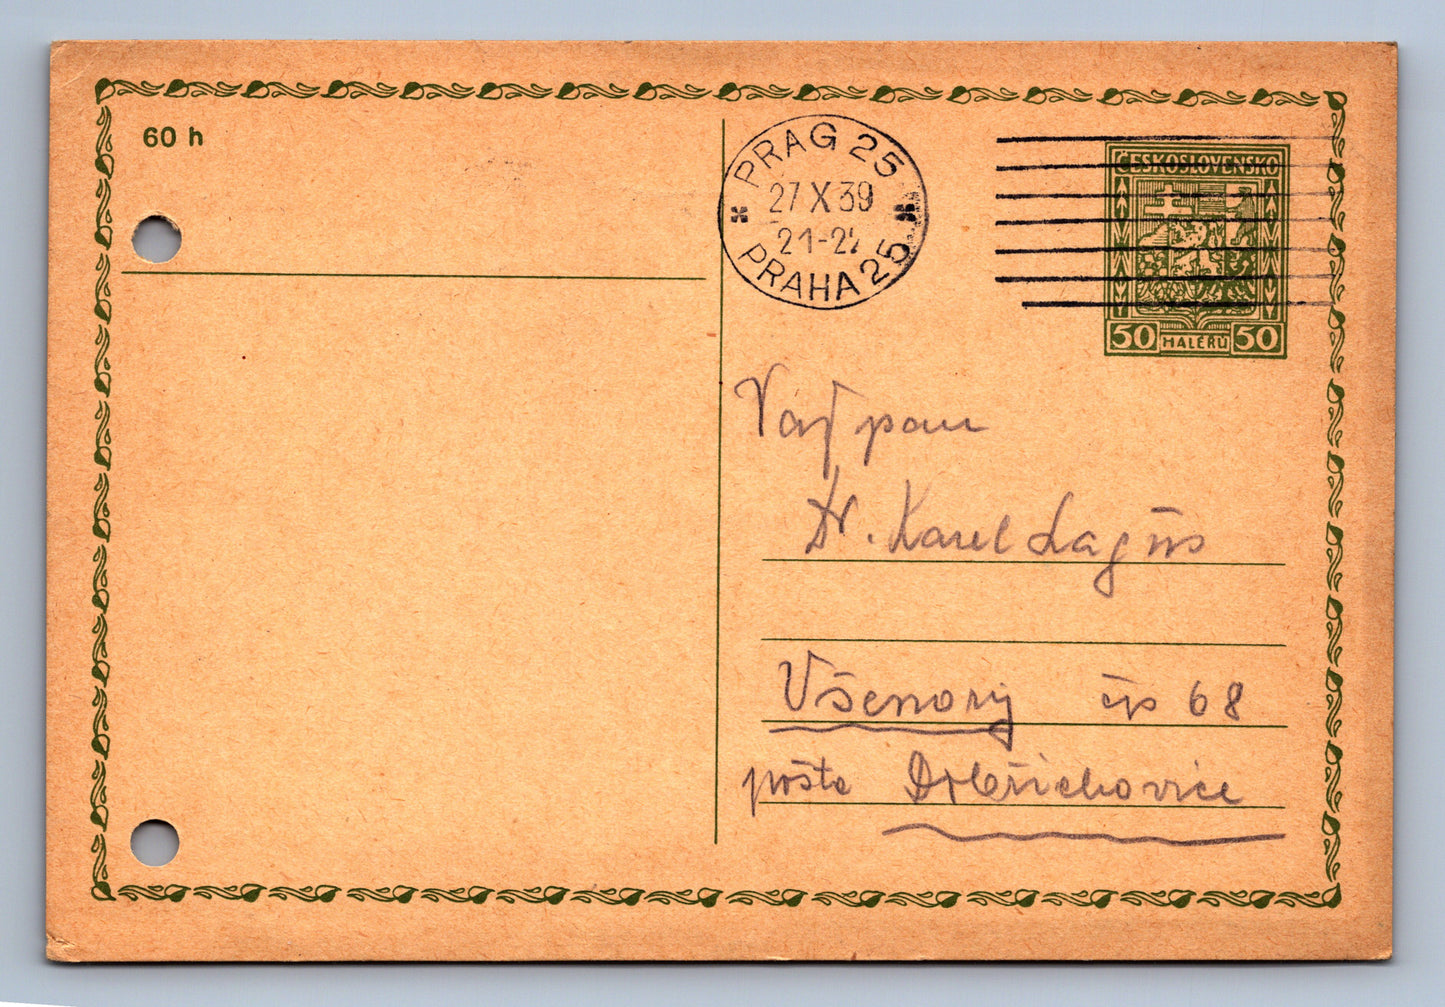 60 h
PRAG 25
27 X 39
21-2
PRAHA 25
ČESKOSLOVENSKO
50 HALÉŘŮ 50
Važ pan
Dr. Karel Lagus
Všenory čís 68
pošta Dobřichovice